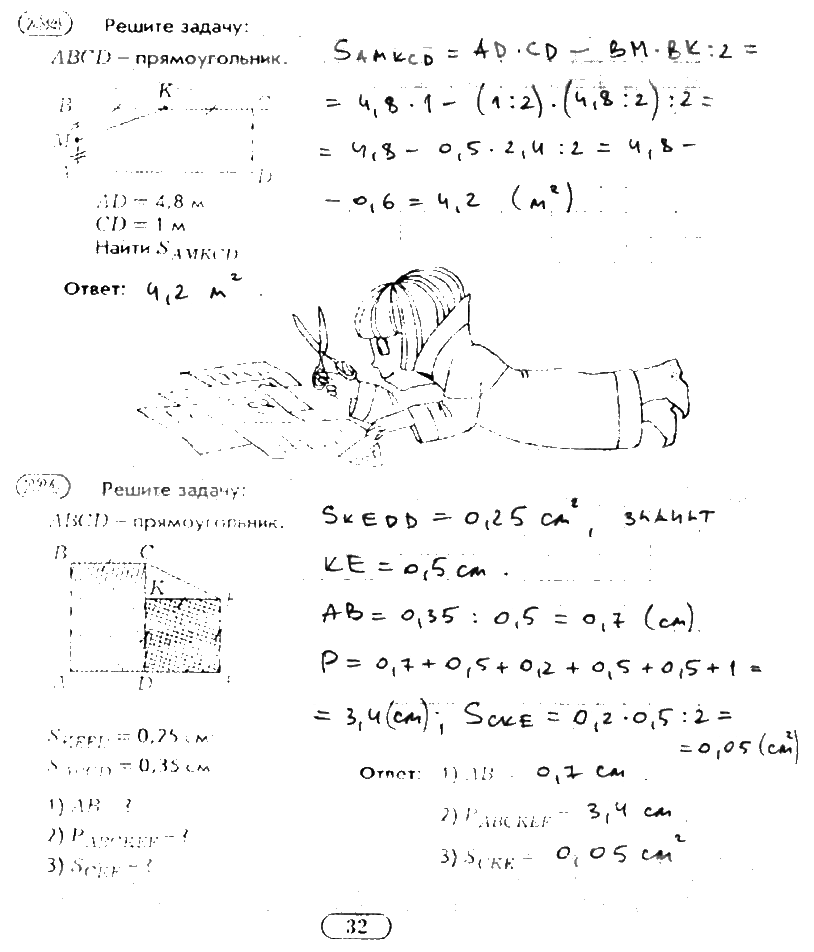 Решите задачу:
ABCD – прямоугольник.
B K C
M
D
AD = 4,8 м
CD = 1 м
Найти S AMKCD
S AMKCD = AD · CD – BM · BK : 2 =
= 4,8 · 1 – (1 : 2) · (4,8 : 2) : 2 =
= 4,8 – 0,5 · 2,4 : 2 = 4,8 –
– 0,6 = 4,2 (м²)
Ответ: 4,2 м².
Решите задачу:
ABCD – прямоугольник.
B C
K
A D
= 0,25 см
= 0,35 см
1) AB – ?
2) P ABCKEF – ?
3) S CKE – ?
S KEDD = 0,25 см², значит
KE = 0,5 см.
AB = 0,35 : 0,5 = 0,7 (см)
P = 0,7 + 0,5 + 0,2 + 0,5 + 0,5 + 1 =
= 3,4 (см); S CKE = 0,2 · 0,5 : 2 =
= 0,05 (см²)
Ответ: 1) AB – 0,7 см.
2) P ABCKEF – 3,4 см
3) S CKE – 0,05 см²
32